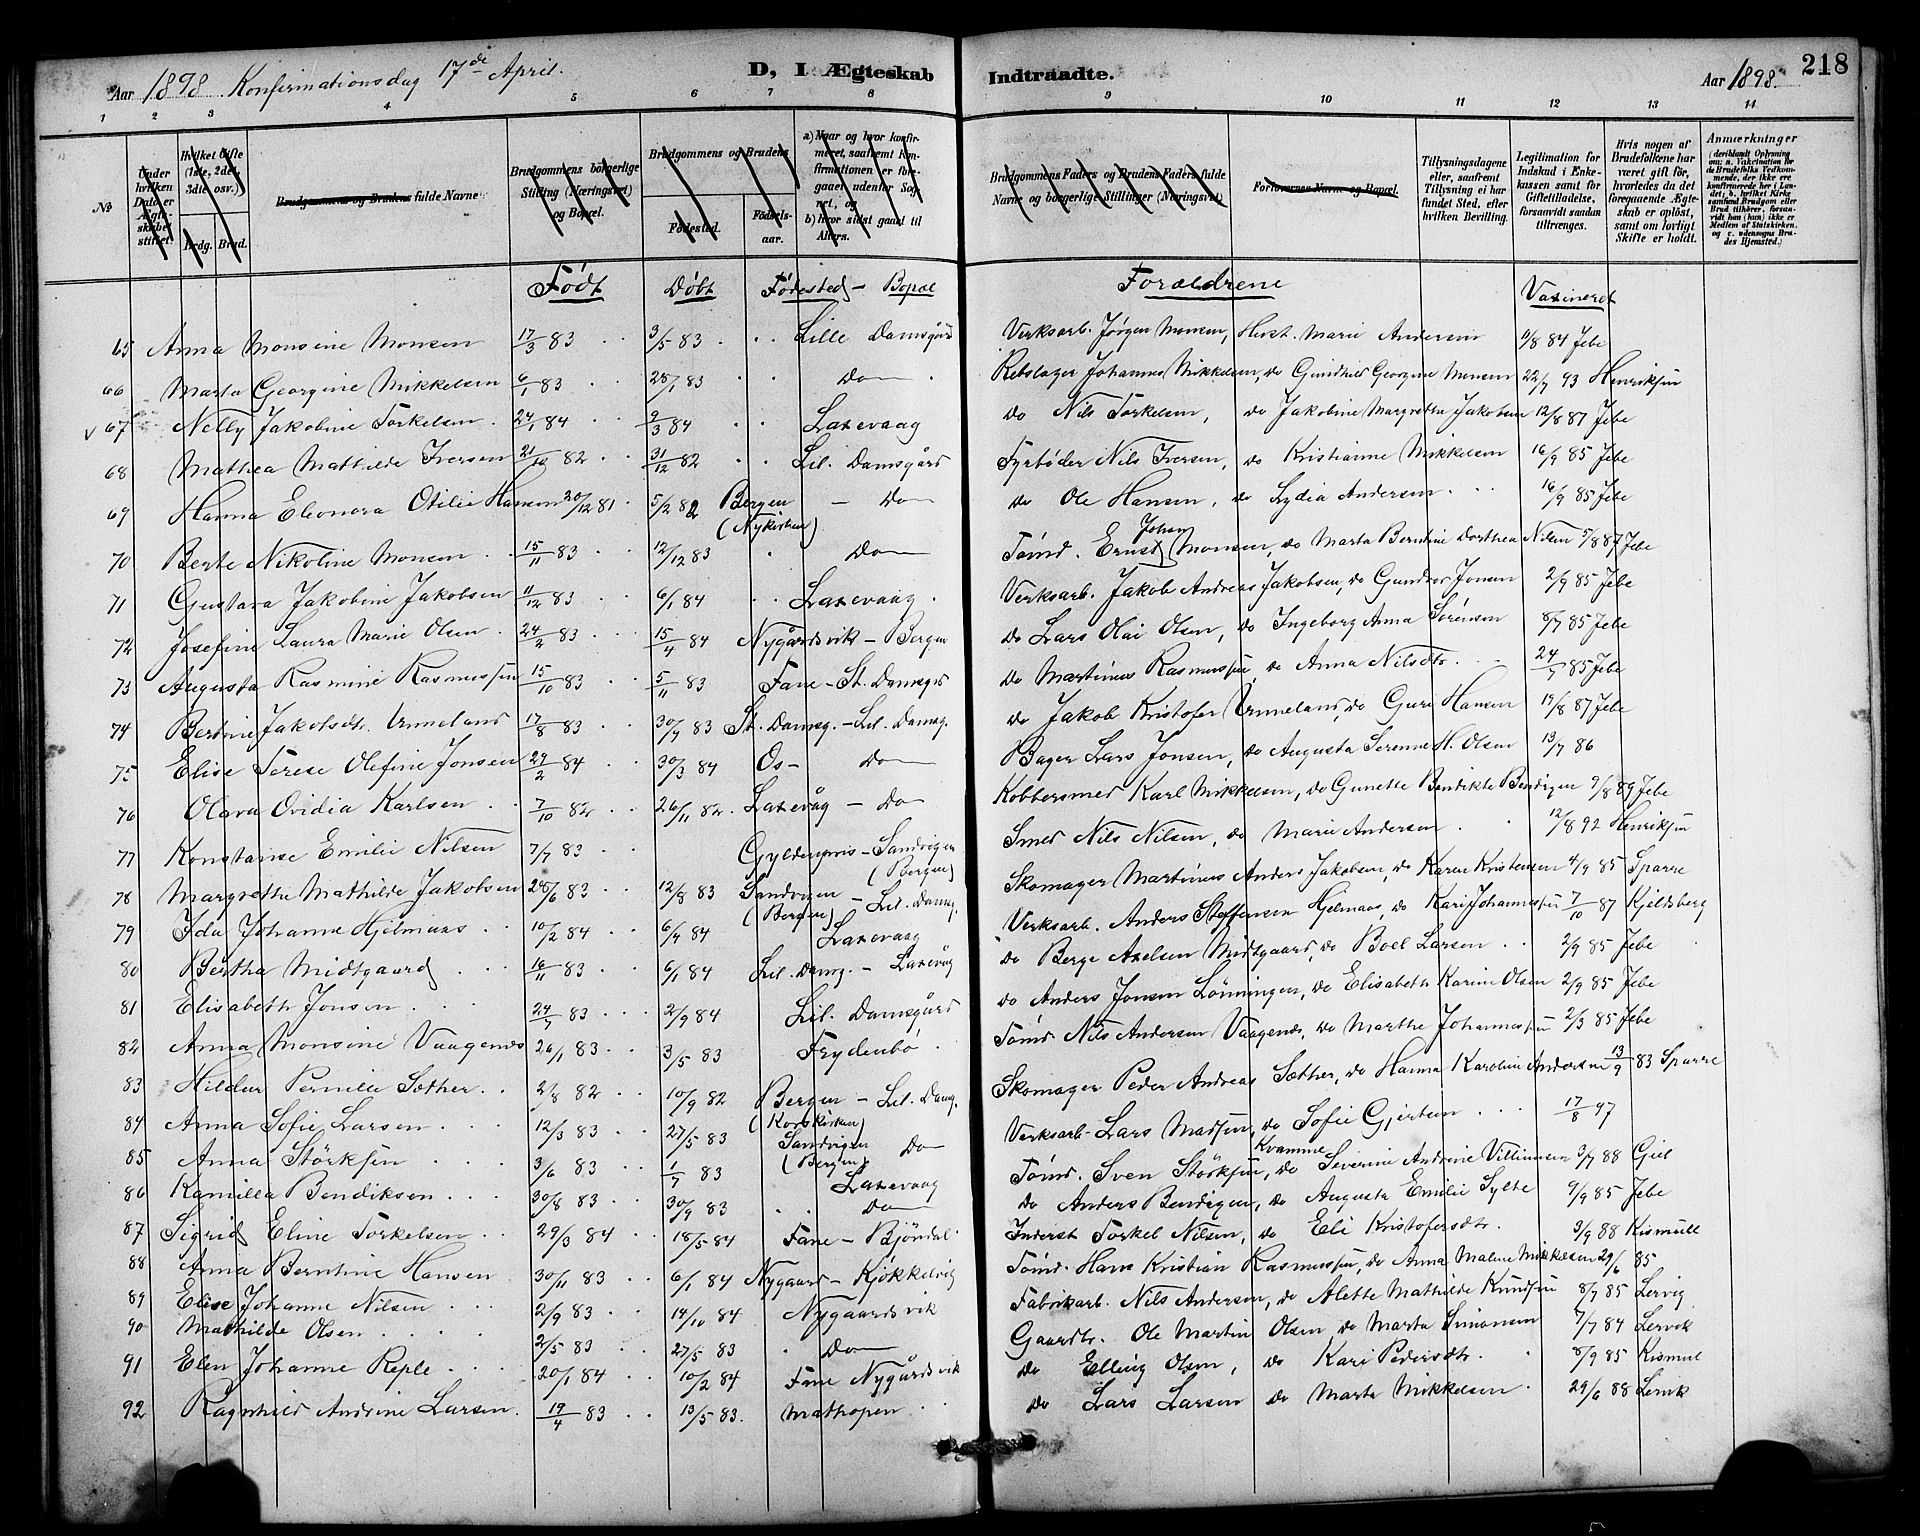 218
Aar 1898 Konfirmationsdag 17de April. D, I Ægteskab Indtraadte. Aar 1898.
1 2 3 4 5 6 7 8 9 10 11 12 13 14
No
Under hvilken Dato er Ægteskabet stiftet.
Hvilket Gifte (1ste, 2det, 3die osv.)
Brdg. Brud.
Brudgommens og Brudens fulde Navne
Brudgommens borgerlige Stilling (Næringsvei) og Bopæl.
Brudgommens og Brudens
Fødested. Fødselsaar.
a) Naar og hvor konfirmeret, saafremt Konfirmationen er foregaaet udenfor Sognet, og b) hvor sidst gaaet til Alters.
Brudgommens Faders og Brudens Faders fulde Navne og borgerlige Stillinger (Næringsvei)
Forlovernes Navne og Bopæl.
Tillysningsdagene eller, saafremt Tillysning ei har fundet Sted, efter hvilken Bevilling.
Legitimation for Indskud i Enkekassen samt for Giftetilladelse, forsaavidt saadan tiltrænges.
Hvis nogen af Brudefolkene har været gift før, hvorledes da det foregaaende Ægteskab er opløst, samt om lovligt Skifte er holdt.
Anmærkninger
Født Døbt Fødested – Bopæl Forældrene Vaxineret
65 Anna Monsine Monsen 17/3 83 3/5 83 Lille Damsgård Verksarb. Jørgen Monsen, Hust. Marie Andersen 11/8 84 Jebe
66 Marta Georgine Mikkelsen 6/1 83 28/1 83 Do Rebslager Johannes Mikkelsen, do Gundhild Georgine Monsen 22/7 93 Henriksen
v 67 Nelly Jakobine Torkelsen 24/1 84 9/3 84 Laxevaag do Nils Torkelsen, do Jakobine Margrethe Jakobsen 12/8 87 Jebe
68 Mathea Mathilde Iversen 21/10 82 31/12 82 Lil. Damsgård Fyrbøder Nils Iversen, do Kristianne Mikkelsen 16/9 85 Jebe
69 Hanna Eleonora Otilie Hansen 20/12 81 5/2 82 Bergen (Nykirken) – Do do Ole Hansen, do Lydia Andersen 16/9 85 Jebe
70 Berte Nikoline Monsen 15/11 83 12/12 83 Do Tømd. Ernst Johan Monsen, do Marta Berntine Dorthea Nilsen 5/8 87 Jebe
71 Gustava Jakobine Jakobsen 11/12 83 6/1 84 Laxevaag Verksarb. Jakob Andreas Jakobsen, do Gundror Jonsen 2/9 85 Jebe
72 Josefine Laura Marie Olsen 24/2 83 15/4 84 Nygårdsvik – Bergen do Lars Olai Olsen, do Ingeborg Anna Sørensen 8/7 85 Jebe
73 Augusta Rasmine Rasmussen 15/10 83 5/11 83 Fane – St. Damsgrd do Martinus Rasmussen, do Anna Nilsdtr. 24/7 85 Jebe
74 Bertine Jakobsdtr. Unneland 17/8 83 30/9 83 St. Damsg. – Lil. Damsg. do Jakob Kristofer Unneland, do Guri Hansen 19/8 87 Jebe
75 Elise Terese Olefine Jonsen 29/2 84 30/3 84 Os – Do Bager Lars Jonsen, do Augusta Serenne H. Olsen 13/7 86
76 Olava Ovidia Karlsen 7/10 82 26/11 82 Laxevåg – Do Kobbersmed Karl Mikkelsen, do Gunette Bendikte Bendixen 9/8 89 Jebe
77 Konstanse Emilie Nilsen 7/7 83 Gyldenpris – Sandvigen (Bergen) Smed Nils Nilsen, do Marie Andersen 12/8 92 Henriksen
78 Margrethe Mathilde Jakobsen 28/6 83 12/8 83 Sandvigen (Bergen) – Lil. Damsg. Skomager Martinus Anders Jakobsen, do Karen Kristensen 4/9 85 Sparre
79 Ida Johanne Hjelmaas 10/2 84 6/4 84 Laxevaag Verksarb. Anders Steffensen Hjelmaas, do Kari Johannessen 7/10 87 Kjeldsberg
80 Bertha Midtgaard 16/11 83 6/1 84 Lil. Damsg. – Laxevåg do Berge Axelsen Midtgaard, do Boel Larsen 2/9 85 Jebe
81 Elisabeth Jonsen 24/7 83 2/9 84 Lil. Damsgård do Anders Jonsen Lønningen, do Elisabeth Karine Olsen 2/9 85 Jebe
82 Anna Monsine Vaagenes 26/1 83 3/5 83 Frydenbø Tømd Nils Andersen Vaagenes, do Marthe Johannessen 2/3 85 Jebe
83 Hildur Pernille Sæther 2/8 82 10/9 82 Bergen (Korskirken) – Lil. Damsg. Skomager Peder Andreas Sæther, do Hanna Karoline Andersen 13/9 83 Sparre
84 Anna Sofie Larsen 12/3 83 27/5 83 Sandvigen (Bergen) Do Verksarb. Lars Madsen, do Sofie Gjertsen 17/8 97
85 Anna Størksen 3/6 83 1/7 83 Laxevaag Tømd. Sven Størksen Kvamme, do Severine Andrine Villumsen 3/7 88 Giel
86 Kamilla Bendiksen 30/8 83 30/9 83 Do do Anders Bendixen, do Augusta Emilie Sylte 9/9 85 Jebe
87 Sigrid Eline Torkelsen 29/3 84 18/5 84 Fane – Bjöndal Inderst Torkel Nilsen, do Eli Kristofersdtr. 9/9 88 Rismull
88 Anna Berntine Hansen 30/11 83 6/1 84 Nygaard – Kjøkkelvig Tømd. Hans Kristian Rasmussen, do Anna Malene Mikkelsen 29/6 85
89 Elise Johanne Nilsen 2/9 83 14/10 84 Nygaardsvik Fabrikarb. Nils Andersen, do Alette Mathilde Knudsen 8/7 85 Lervig
90 Mathilde Olsen 2/5 83 27/5 83 Do Gaardbr. Ole Martin Olsen do Marta Simonsen 7/7 84 Lervik
91 Elen Johanne Reple 20/1 84 10/2 84 Fane Nygårdsvik do Elling Olsen, do Kari Pedersdtr. 8/9 85 Rismul
92 Ragnhild Andrine Larsen 19/4 83 13/5 83. Mathopen do Lars Larsen do Marta Mikkelsen 29/6 88 Lervik